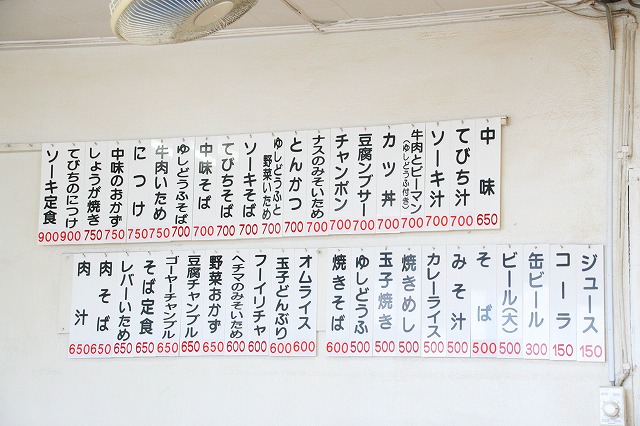 中味 650
てびち汁 700
ソーキ汁 700
牛肉とピーマン(ゆしどうふ付き) 700
カツ丼 700
豆腐ンブサー 700
チャンポン 700
ナスのみそいため 700
とんかつ 700
ゆしどうふと野菜いため 700
ソーキそば 700
てびちそば 700
中味そば 700
ゆしどうふそば 700
牛肉いため 750
につけ 750
中味のおかず 750
しょうが焼き 750
てびちのにつけ 900
ソーキ定食 900
ジュース 150
コーラ 150
缶ビール 300
ビール(大) 500
そば 500
みそ汁 500
カレーライス 500
焼きめし 500
玉子焼き 500
ゆしどうふ 500
焼きそば 600
オムライス 600
玉子どんぶり 600
フーイリチャ 600
ヘチマのみそいため 600
野菜おかず 650
豆腐チャンプル 650
ゴーヤーチャンプル 650
そば定食 650
レバーいため 650
肉そば 650
肉汁 650